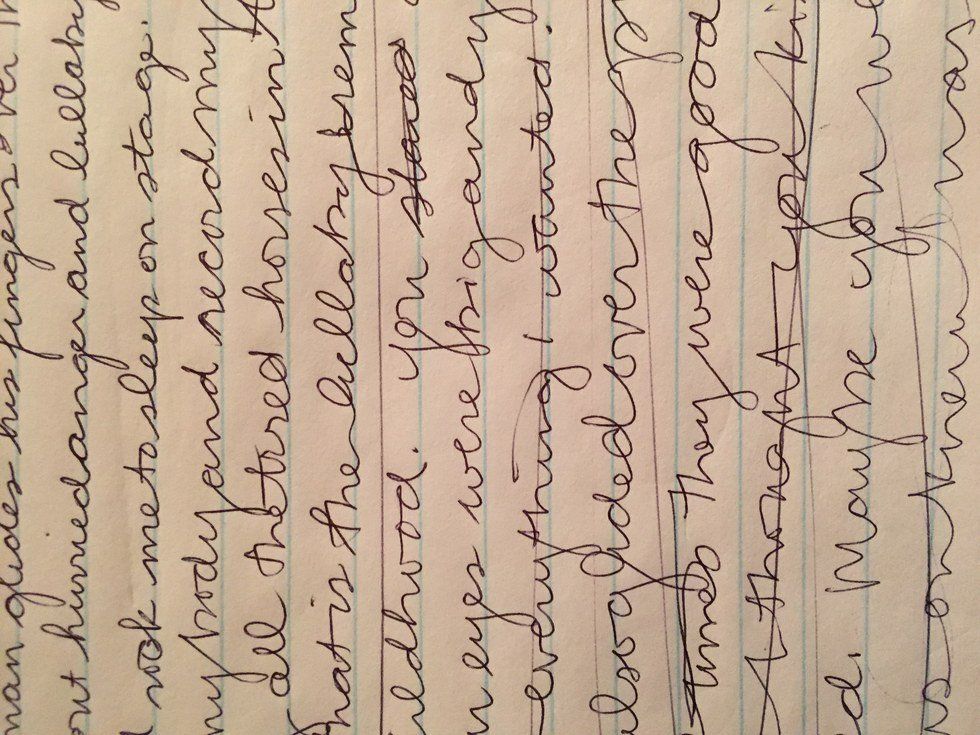 man glides his fingers over th
out hurried anger and lullaby
rock me to sleep on stage.
my body and record my
all the tired horses in t
hat is the lullaby
ildhood. you stared
n eyes were big and y
everything I wanted.
also glided over the p
They were good
I thought you ki
d. Maybe you we
on them